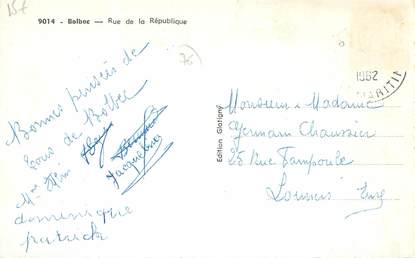 15€
9014 - Bolbec — Rue de la République
76
1962
MARITI
Bonnes pensées de
tous de Bolbec
Mme
Jacqueline
dominique
patrick
Edition Glatigny
Monsieur & Madame
Germain Chaussier
25 Rue
Louviers Eure